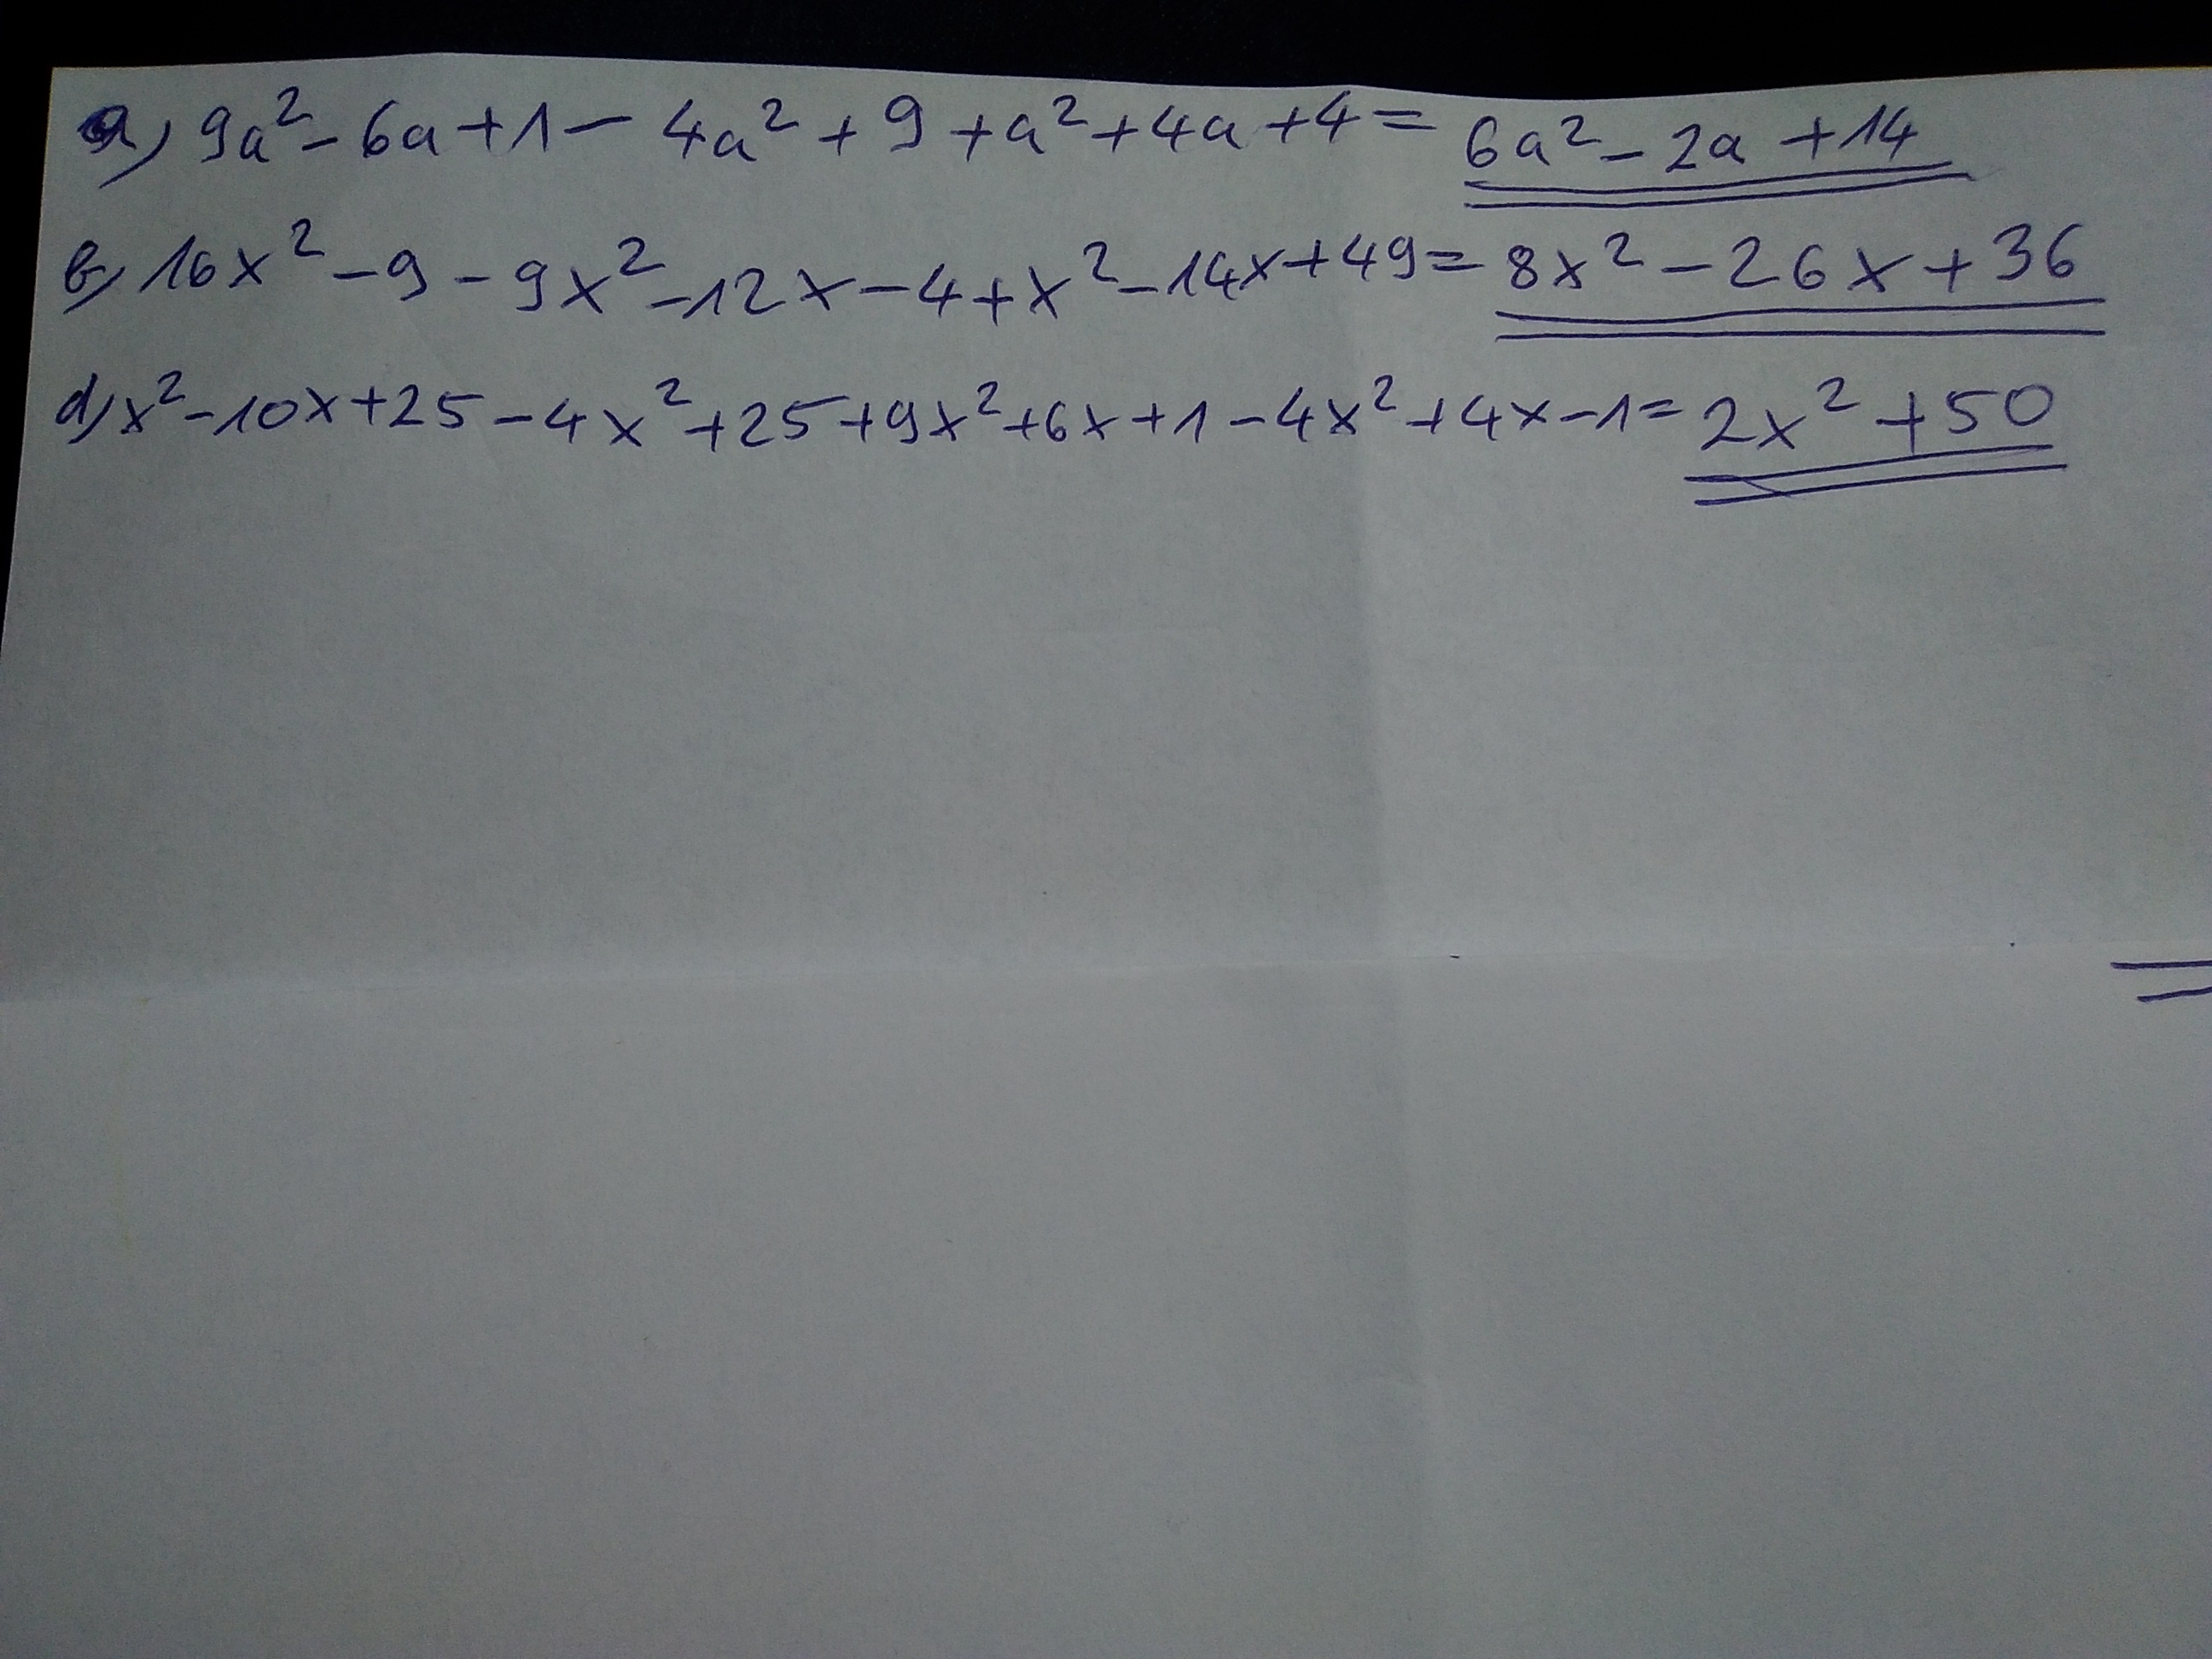 a) 9a² - 6a + 1 - 4a² + 9 + a² + 4a + 4 = 6a² - 2a + 14
b) 16x² - 9 - 9x² - 12x - 4 + x² - 14x + 49 = 8x² - 26x + 36
d) x² - 10x + 25 - 4x² + 25 + 9x² + 6x + 1 - 4x² + 4x - 1 = 2x² + 50